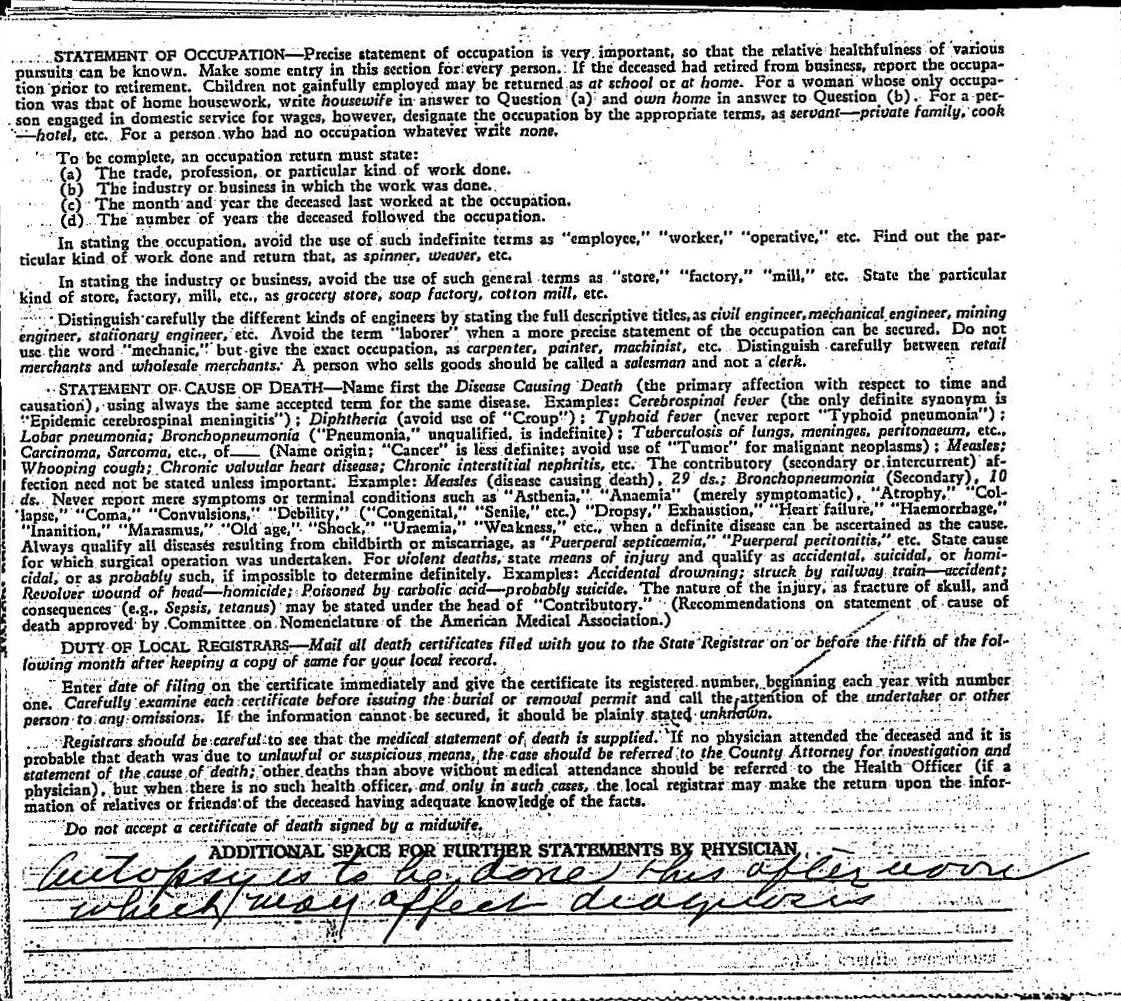 STATEMENT OF OCCUPATION—Precise statement of occupation is very important, so that the relative healthfulness of various
pursuits can be known. Make some entry in this section for every person. If the deceased had retired from business, report the occupa-
tion prior to retirement. Children not gainfully employed may be returned as at school or at home. For a woman whose only occupa-
tion was that of home housework, write housewife in answer to Question (a) and own home in answer to Question (b). For a per-
son engaged in domestic service for wages, however, designate the occupation by the appropriate terms, as servant—private family, cook
—hotel, etc. For a person who had no occupation whatever write none.
To be complete, an occupation return must state:
(a) The trade, profession, or particular kind of work done.
(b) The industry or business in which the work was done.
(c) The month and year the deceased last worked at the occupation.
(d) The number of years the deceased followed the occupation.
In stating the occupation, avoid the use of such indefinite terms as "employee," "worker," "operative," etc. Find out the par-
ticular kind of work done and return that, as spinner, weaver, etc.
In stating the industry or business, avoid the use of such general terms as "store," "factory," "mill," etc. State the particular
kind of store, factory, mill, etc., as grocery store, soap factory, cotton mill, etc.
Distinguish carefully the different kinds of engineers by stating the full descriptive titles, as civil engineer, mechanical engineer, mining
engineer, stationary engineer, etc. Avoid the term "laborer" when a more precise statement of the occupation can be secured. Do not
use the word "mechanic," but give the exact occupation, as carpenter, painter, machinist, etc. Distinguish carefully between retail
merchants and wholesale merchants. A person who sells goods should be called a salesman and not a clerk.
STATEMENT OF CAUSE OF DEATH—Name first the Disease Causing Death (the primary affection with respect to time and
causation), using always the same accepted term for the same disease. Examples: Cerebrospinal fever (the only definite synonym is
"Epidemic cerebrospinal meningitis"); Diphtheria (avoid use of "Croup"); Typhoid fever (never report "Typhoid pneumonia");
Lobar pneumonia; Bronchopneumonia ("Pneumonia," unqualified, is indefinite); Tuberculosis of lungs, meninges, peritonaeum, etc.,
Carcinoma, Sarcoma, etc., of—— (Name origin; "Cancer" is less definite; avoid use of "Tumor" for malignant neoplasms); Measles;
Whooping cough; Chronic valvular heart disease; Chronic interstitial nephritis, etc. The contributory (secondary or intercurrent) af-
fection need not be stated unless important. Example: Measles (disease causing death), 29 ds.; Bronchopneumonia (Secondary), 10
ds. Never report mere symptoms or terminal conditions such as "Asthenia," "Anaemia" (merely symptomatic), "Atrophy," "Col-
lapse," "Coma," "Convulsions," "Debility," ("Congenital," "Senile," etc.) "Dropsy," Exhaustion," "Heart failure," "Haemorrhage,"
"Inanition," "Marasmus," "Old age," "Shock," "Uraemia," "Weakness," etc., when a definite disease can be ascertained as the cause.
Always qualify all diseases resulting from childbirth or miscarriage, as "Puerperal septicaemia," "Puerperal peritonitis," etc. State cause
for which surgical operation was undertaken. For violent deaths, state means of injury and qualify as accidental, suicidal, or homi-
cidal, or as probably such, if impossible to determine definitely. Examples: Accidental drowning; struck by railway train—accident;
Revolver wound of head—homicide; Poisoned by carbolic acid—probably suicide. The nature of the injury, as fracture of skull, and
consequences (e.g., Sepsis, tetanus) may be stated under the head of "Contributory." (Recommendations on statement of cause of
death approved by Committee on Nomenclature of the American Medical Association.)
DUTY OF LOCAL REGISTRARS—Mail all death certificates filed with you to the State Registrar on or before the fifth of the fol-
lowing month after keeping a copy of same for your local record.
Enter date of filing on the certificate immediately and give the certificate its registered number, beginning each year with number
one. Carefully examine each certificate before issuing the burial or removal permit and call the attention of the undertaker or other
person to any omissions. If the information cannot be secured, it should be plainly stated unknown.
Registrars should be careful to see that the medical statement of death is supplied. If no physician attended the deceased and it is
probable that death was due to unlawful or suspicious means, the case should be referred to the County Attorney for investigation and
statement of the cause of death; other deaths than above without medical attendance should be referred to the Health Officer (if a
physician), but when there is no such health officer, and only in such cases, the local registrar may make the return upon the infor-
mation of relatives or friends of the deceased having adequate knowledge of the facts.
Do not accept a certificate of death signed by a midwife.
ADDITIONAL SPACE FOR FURTHER STATEMENTS BY PHYSICIAN
Autopsy is to be done this afternoon
which may affect diagnosis